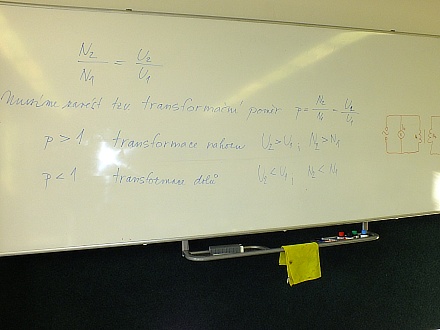 N₂/N₁ = U₂/U₁
Musíme zavést tzv transformační poměr p = N₂/N₁ = U₂/U₁
p > 1 transformace nahoru U₂>U₁; N₂>N₁
p < 1 transformace dolů U₂<U₁; N₂<N₁